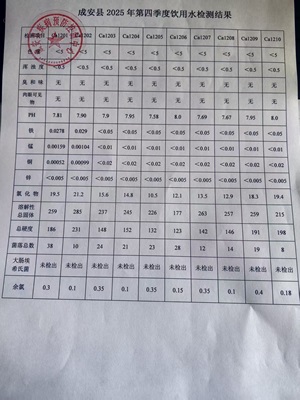 成安县 2025 年第四季度饮用水检测结果
Ca1201 Ca1202 Ca1203 Ca1204 Ca1205 Ca1206 Ca1207 Ca1208 Ca1209 Ca1210
色度 <5 <5 <5 <5 <5 <5 <5 <5 <5
浑浊度 <0.5 <0.5 <0.5 <0.5 <0.5 <0.5 <0.5 <0.5 <0.5 <0.5
臭和味 无 无 无 无 无 无 无 无 无 无
肉眼可见物 无 无 无 无 无 无 无 无 无 无
PH 7.81 7.90 7.9 7.95 7.58 8.0 7.69 7.67 7.95 8.0
铁 0.0278 0.029 <0.05 <0.05 <0.05 <0.05 <0.05 <0.05 <0.05 <0.05
锰 0.00159 0.00104 <0.01 <0.01 <0.01 <0.01 <0.01 <0.01 <0.01 <0.01
铜 0.00052 0.00099 <0.02 <0.02 <0.02 <0.02 <0.02 <0.02 <0.02 <0.02
锌 <0.005 <0.005 <0.005 <0.005 <0.005 <0.005 <0.005 <0.005 <0.005 <0.005
氯化物 19.5 21.2 15.6 14.8 10.5 12.1 13.5 12.9 18.3 19.4
溶解性总固体 259 285 237 245 226 177 263 257 259 215
总硬度 186 231 148 152 132 123 142 146 191 198
菌落总数 38 10 24 21 23 28 12 14 19 8
大肠埃希氏菌 未检出 未检出 未检出 未检出 未检出 未检出 未检出 未检出 未检出 未检出
余氯 0.3 0.1 0.35 0.1 0.35 0.15 0.35 0.1 0.4 0.18